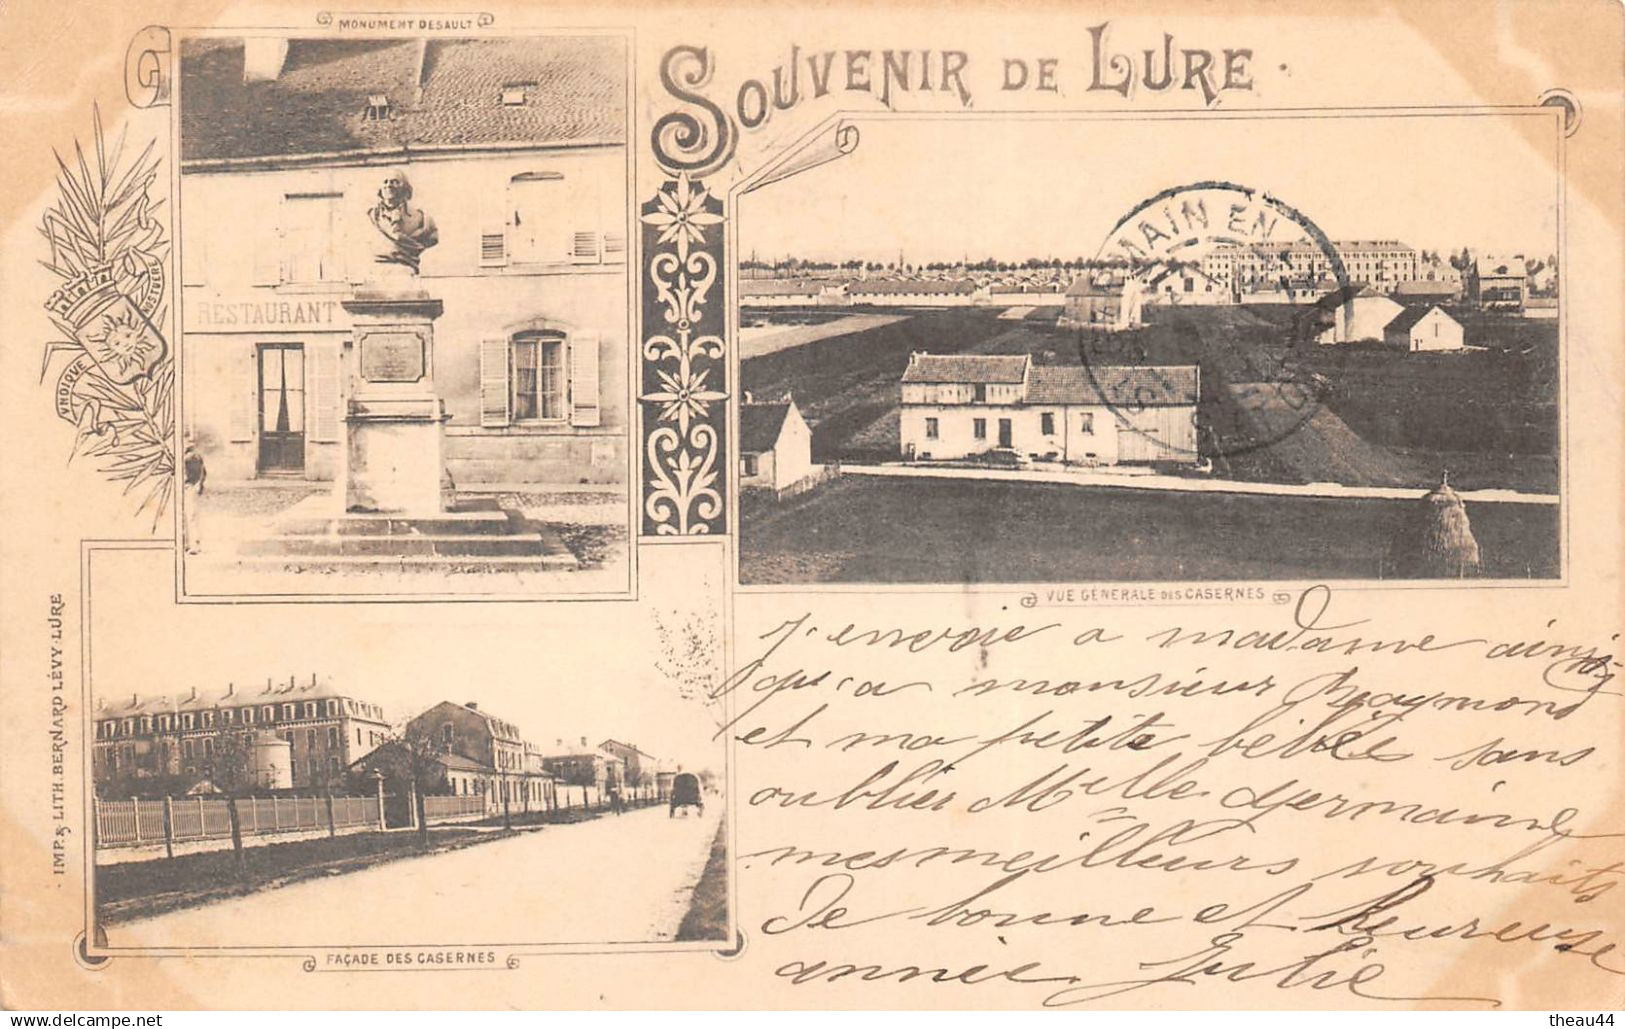 MONUMENT DESAULT
SOUVENIR DE LURE
VNDIQVE
NOSTVERE
RESTAURANT
MAIN EN
VUE GÉNÉRALE DES CASERNES
FAÇADE DES CASERNES
IMP. & LITH. BERNARD LÉVY-LURE
J'envoie a madame ainsi
qu'a monsieur Raymond
et ma petite bébée sans
oublier Melle Germaine
mes meilleurs souhaits
De bonne et heureuse
année Julie
theau44